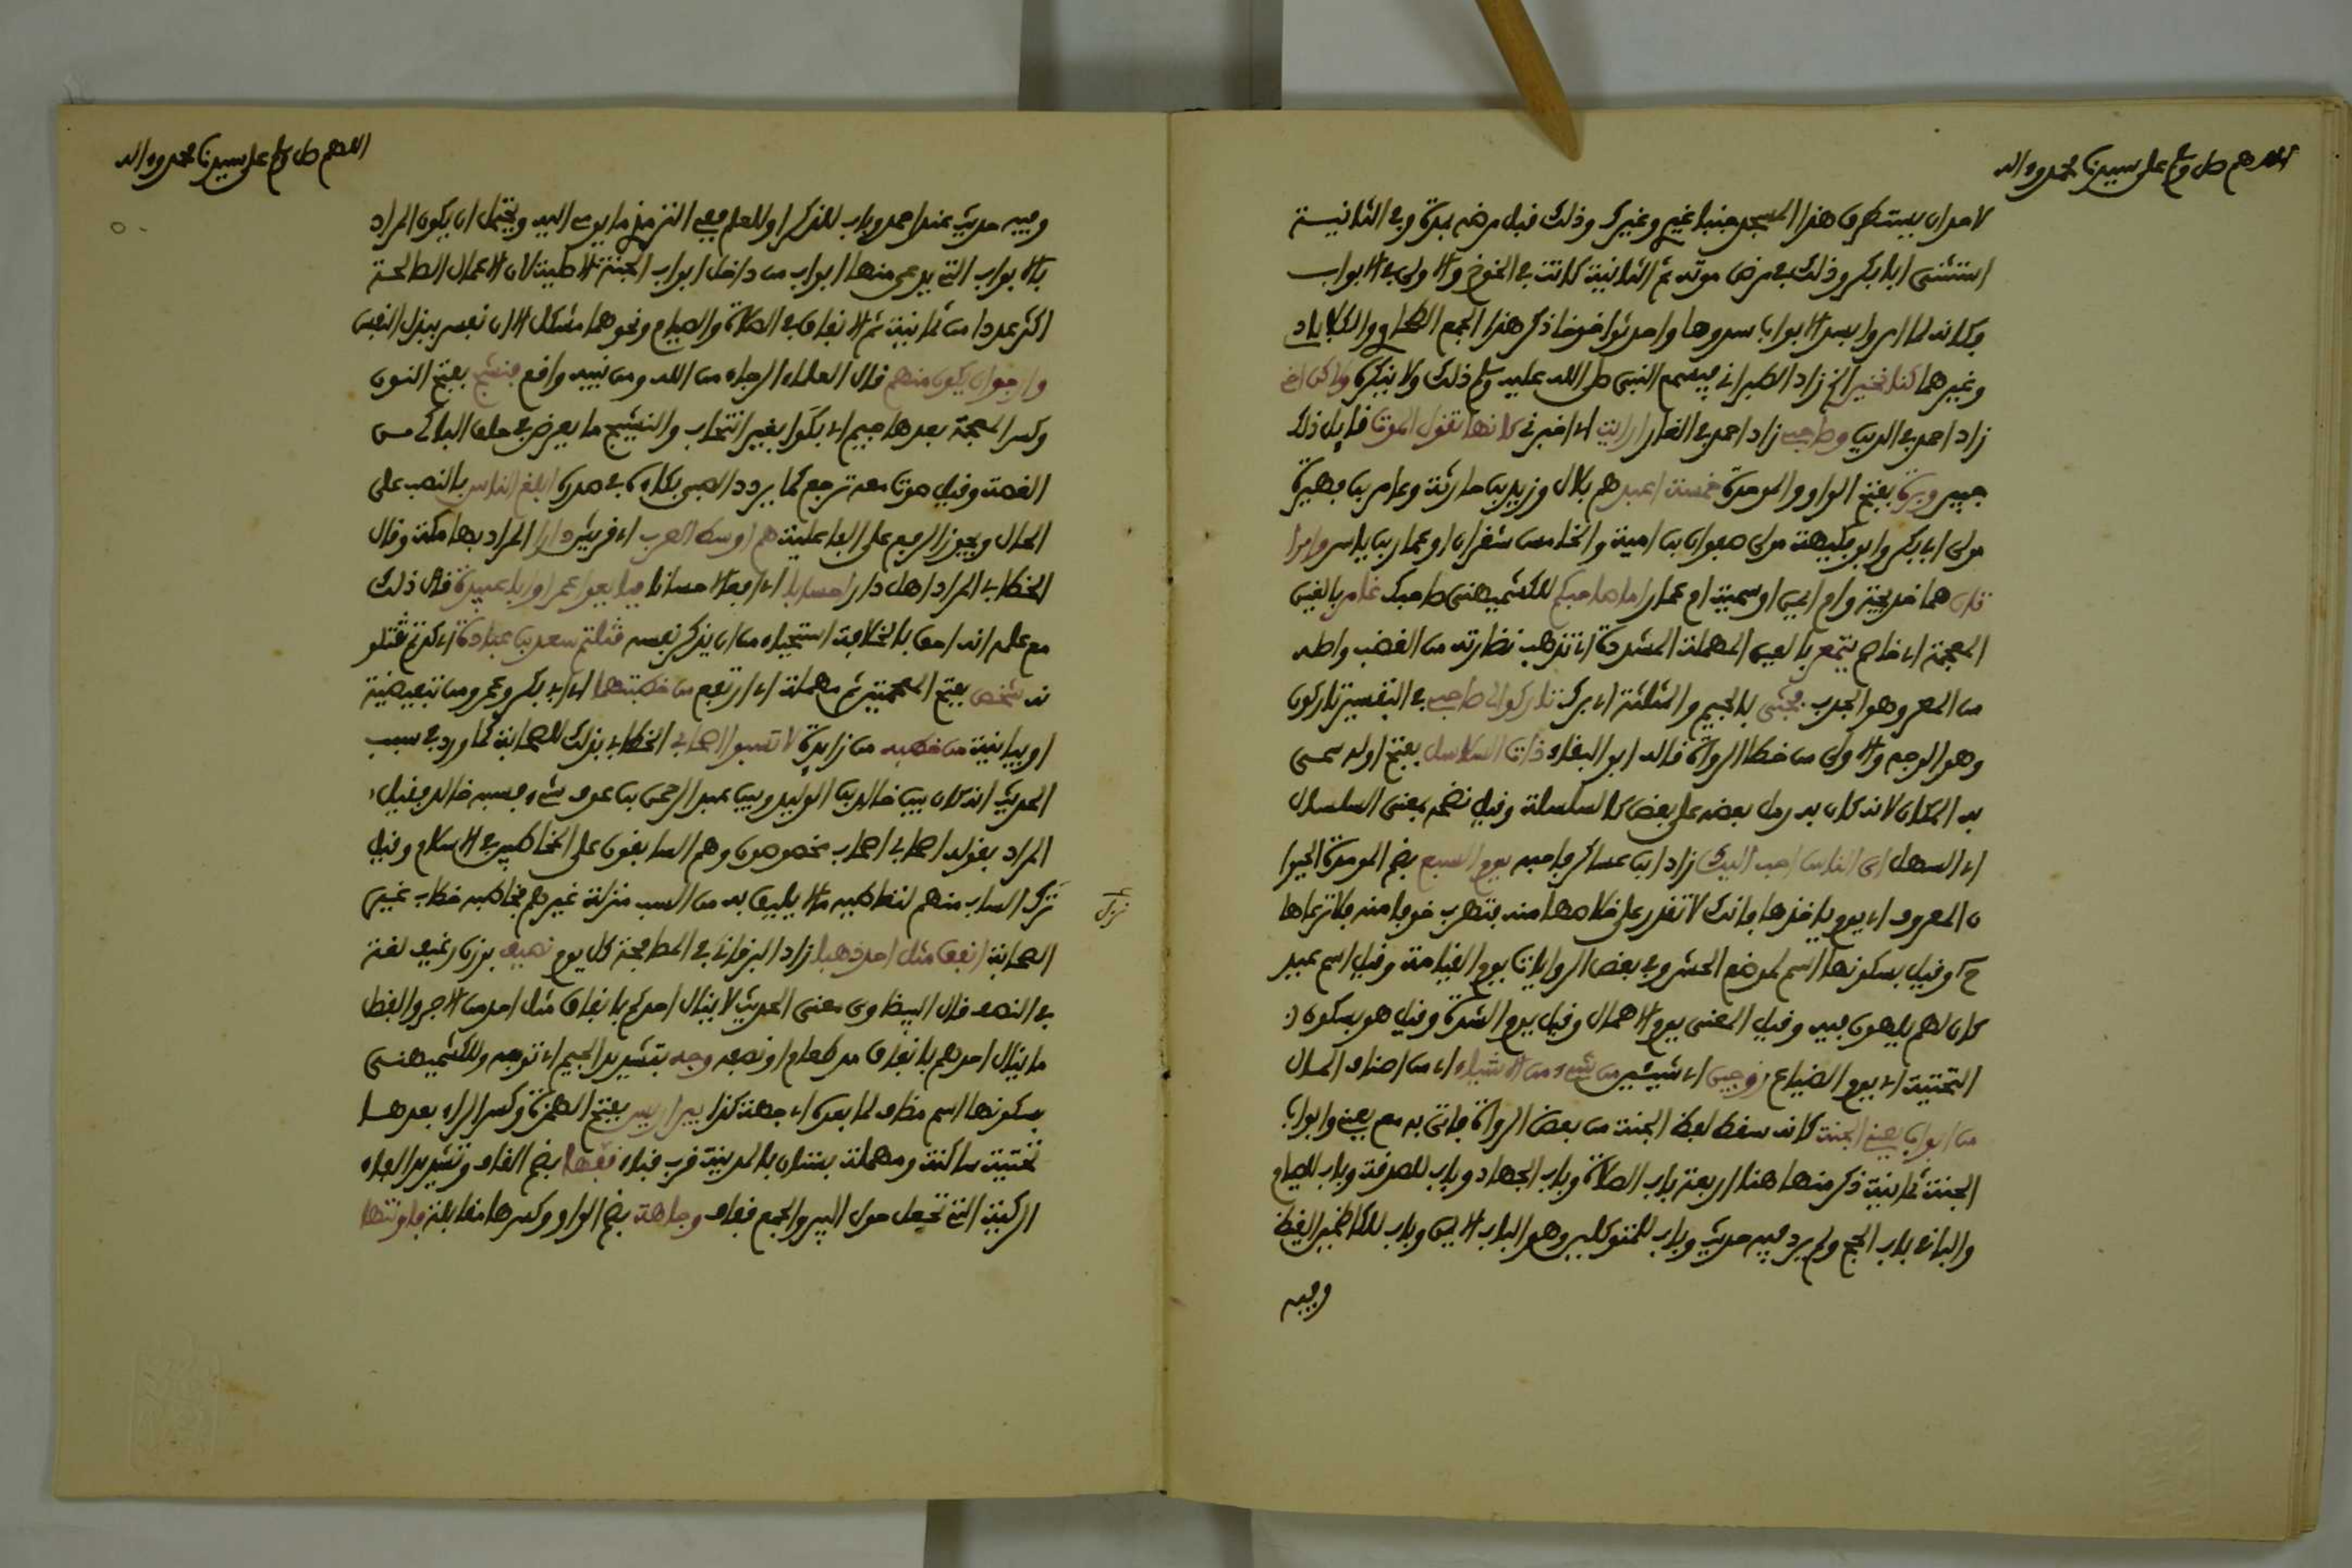 اللهم صل وسلم على سيدنا محمد وءاله
لاحد ان يستطرق هذا المسجد جنبا غيري وغيرك وذلك قبل مرضه بمدة وفي الثانية
استثنى ابا بكر وذلك في مرض موته ثم الثانية كانت في الخوخ والاولى في الابواب
وكانه لما امروا بسد الابواب سدوها واحدثوا خوخا ذكر هذا الجمع الطحاوي والكلاباذي
وغيرهما كنا نخير الخ زاد الطبراني فيسمع النبي صلى الله عليه وسلم ذلك ولا ينكره ولاكن اخي
زاد احمد في الدين وصاحبي زاد احمد في الغار ارايت اي اخبرني كانها تقول الموت قايل ذلك
جبير وبرة بفتح الواو والموحدة خمسة اعبد هم بلال وزيد بن حارثة وعامر بن فهيرة
مولى ابي بكر وابو فكيهة مولى صفوان بن امية والخامس شقران او عمار بن ياسر وامرا
تان هما خديجة وام ايمن او سمية ام عمار اما صاحبكم للكشميهني صاحبك غامر بالغين
المعجمة اي خاصم يتمعر بالعين المهملة المشددة اي تذهب نضارته من الغضب واصله
من المعر وهو الجرب فجثى بالجيم والمثلثة اي برك تاركوا لي صاحبي في التفسير تاركون
وهو الوجه والاولى من خطا الرواة قاله ابو البقاء ذات السلاسل بفتح اوله سمي
به المكان لانه كان به رمل بعضه على بعض كالسلسلة وقيل نضمه بمعنى السلسال
اي السهل اي الناس احب اليك زاد ابن عساكر فاحبه يوم السبع بضم الموحدة الحيوا
ن المعروف اي يوم ياخذها فانك لا تقدر على خلاصها منه فتهرب خوفا منه فلا ترعاها
ح وقيل بسكونها اسم لموضع الحشر وفي بعض الروايات يوم القيامة وقيل اسم عيد
كان لهم يلهون فيه وقيل المعنى يوم الاهمال وقيل يوم الشدة وقيل هو بسكون
التحتية اي يوم الضياع زوجين اي شيئين من شيء من الاشياء اي من اصناف المال
من ابواب يعني الجنة كانه سقط لفظ الجنة من بعض الرواة فاتى به مع يعني وابواب
الجنة ثمانية ذكر منها هنا اربعة باب الصلاة وباب الجهاد وباب للصدقة وباب للصيام
والباقي باب الحج ولم يرد فيه حديث وباب للمتوكلين وهو الباب الايمن وباب للكاظمين الغيظ
وفيه
اللهم صل وسلم على سيدنا محمد وءاله
وفيه حديث عند احمد وباب للذكر او للعلم ففي الترمذي ما يومي اليه ويحتمل ان يكون المراد
بالابواب التي يدعى منها ابواب من داخل ابواب الجنة الاصلية لان الاعمال الصالحة
اكثر عددا من ثمانية ثم الانفاق في الصلاة والصيام ونحوهما مشكل الا ان نفسر ببذل النفس
وارجوا ان يكون منهم قال العلماء الرجاء من الله ومن نبيه واقع فنشج بفتح النون
وكسر المعجمة بعدها جيم اي بكوا بغير انتحاب والنشيج ما يعرض في حلق الباكي من
الغصة وقيل صوت معه ترجع كما يردد الصبي بكاءه في صدره ابلغ الناس بالنصب على
الحال ويجوز الرفع على الفاعلية هم اوسط العرب اي قريش دارا المراد بها مكة وقال
الخطابي المراد اهل دار احسابا اي ارفع احسانا فبايعوا عمر او ابا عبيدة قال ذلك
مع علمه انه احق بالخلافة استحياء من ان يذكر نفسه قتلتم سعد بن عبادة اي كدتم تقتلو
نه شخص بفتح المعجمتين ثم مهملة اي ارتفع من خطبتهما اي ابي بكر وعمر ومن تبعيضية
او بيانية من خطبه من زايدة لا تسبوا اصحابي الخطاب بذلك للصحابة كما ورد في سبب
الحديث انه كان بين خالد بن الوليد وبين عبد الرحمن بن عوف شيء فسبه خالد فقيل
المراد بقوله اصحابي اصحاب مخصوصون وهم السابقون على المخاطبين في الاسلام وقيل
نزل الساب منهم لتعاطيه ما لا يليق به من السب منزلة غيرهم فخاطبه خطاب غير
عـ
نزل
الصحابة انفق مثل احد ذهبا زاد البرقاني في المصافحة كل يوم نصيف بوزن رغيف لغة
في النصف قال البيضاوي معنى الحديث لا ينال احدكم بانفاق مثل احد من الاجر والفضل
ما ينال احدهم بانفاق مد طعام او نصفه وجه بتشديد الجيم اي توجه وللكشميهني
بسكونها اسم مضاف لما بعده اي جهة كذا بير اريس بفتح الهمزة وكسر الراء بعدها
تحتية ساكنة ومهملة بستان بالمدينة قرب قباء قفها بضم القاف وتشديد الفاء
الركية التي تجعل حول البير والجمع قفاف وجاهه بضم الواو وكسرها مقابله فاولتها